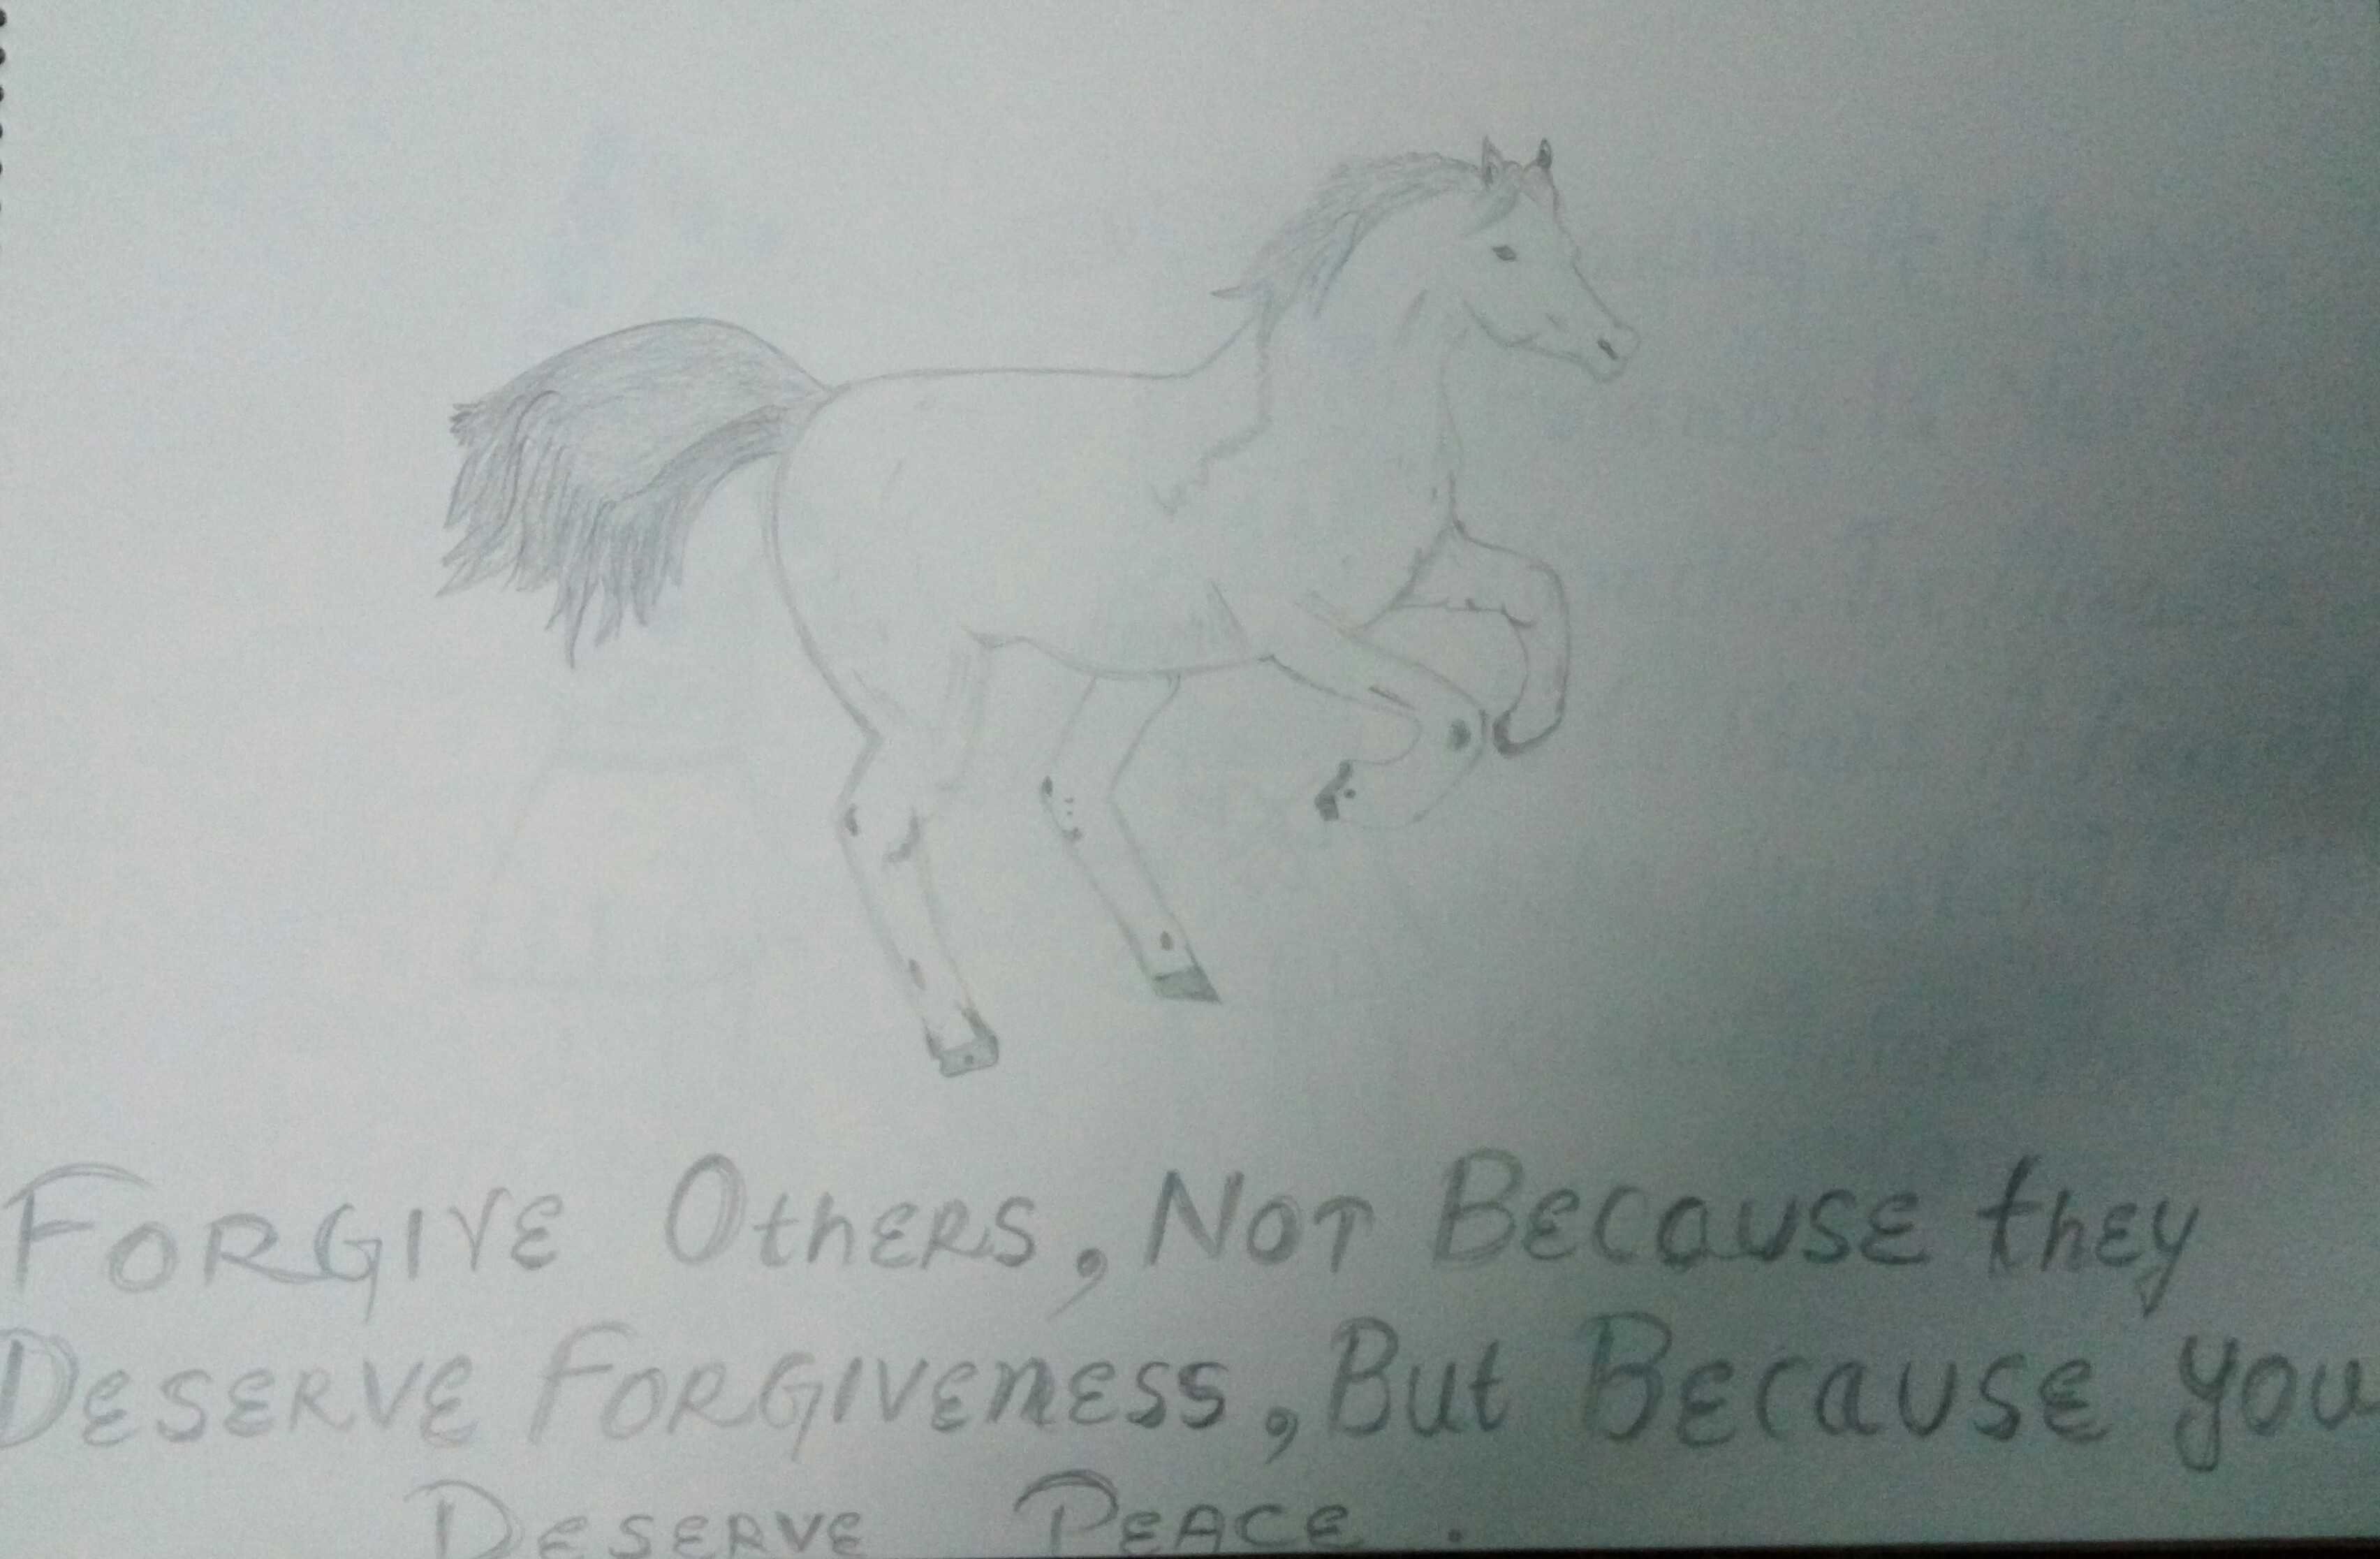 FORGIVE OthERS, NOT BECAUSE they
DESERVE FORGIVENESS, But BECAUSE you
DESERVE PEACE.